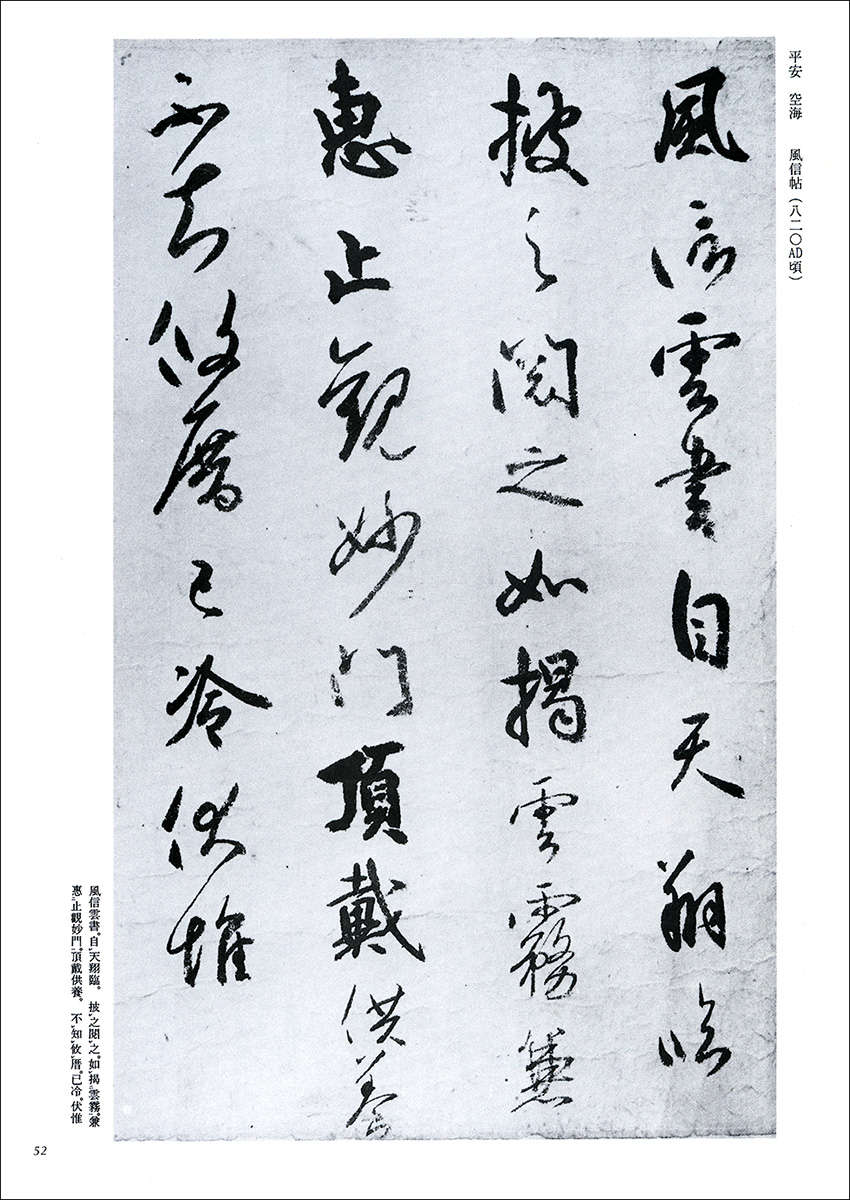 平安　空海　風信帖（八二〇AD頃）
風信雲書自天翔臨
披之閲之如揭雲霧兼
惠止觀妙門頂戴供養
不知攸厝已冷伏惟
風信雲書。自レ天翔臨。披レ之閲レ之。如レ揭二雲霧一。兼
惠二止觀妙門一。頂戴供養。不レ知レ攸レ厝。已冷。伏惟
52